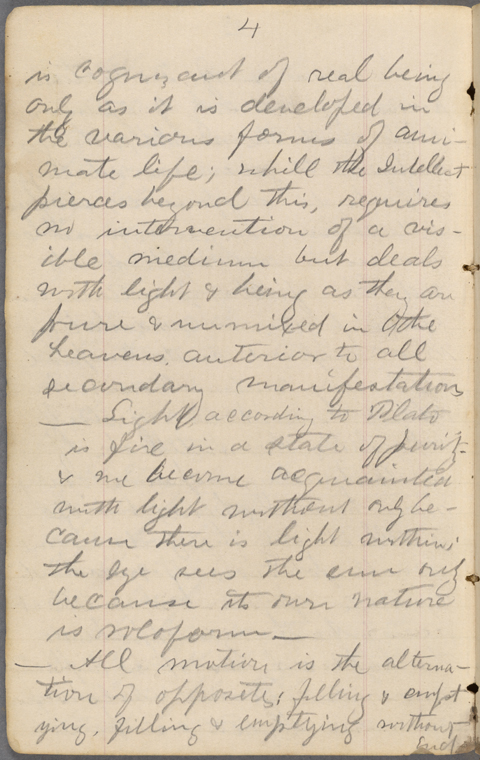 4
is cognizant of real being
only as it is developed in
the various forms of ani-
mate life; whill the Intellect
pierces beyond this, requires
no intervention of a vis-
ible medium but deals
with light & being as they are
pure & unmixed in the
heavens anterior to all
secondary manifestations
— Light, according to Plato
is fire in a state of purity
& we become acquainted
with light without only be-
cause there is light within;
the eye sees the sun only
because its own nature
is soloform —
— All motion is the alterna-
tion of opposites; filling & empt
ying, filling & emptying without
end